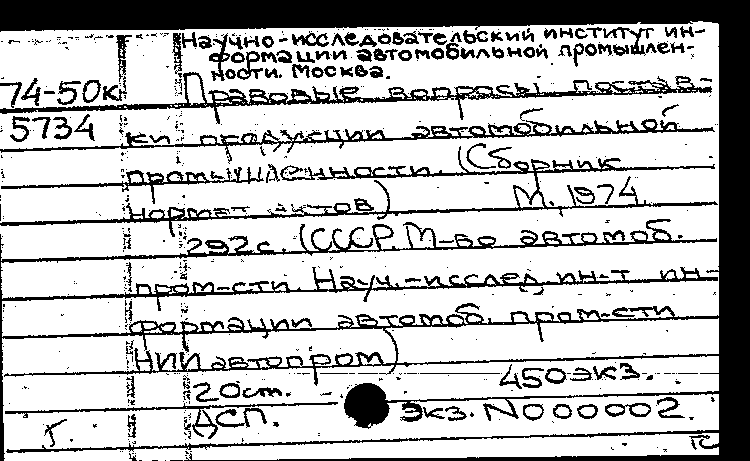 Научно-исследовательский институт ин-
формации автомобильной промышлен-
ности. Москва.
74-50к Правовые вопросы постав-
5734 ки продукции автомобильной
промышленности. (Сборник
нормат актов) М., 1974.
292с. (СССР. М-во автомоб.
пром-сти. Науч.-исслед. ин-т ин-
формации автомоб. пром-сти
НИИавтопром).
20см. 450экз.
ДСП. Экз. N000002.
ГС